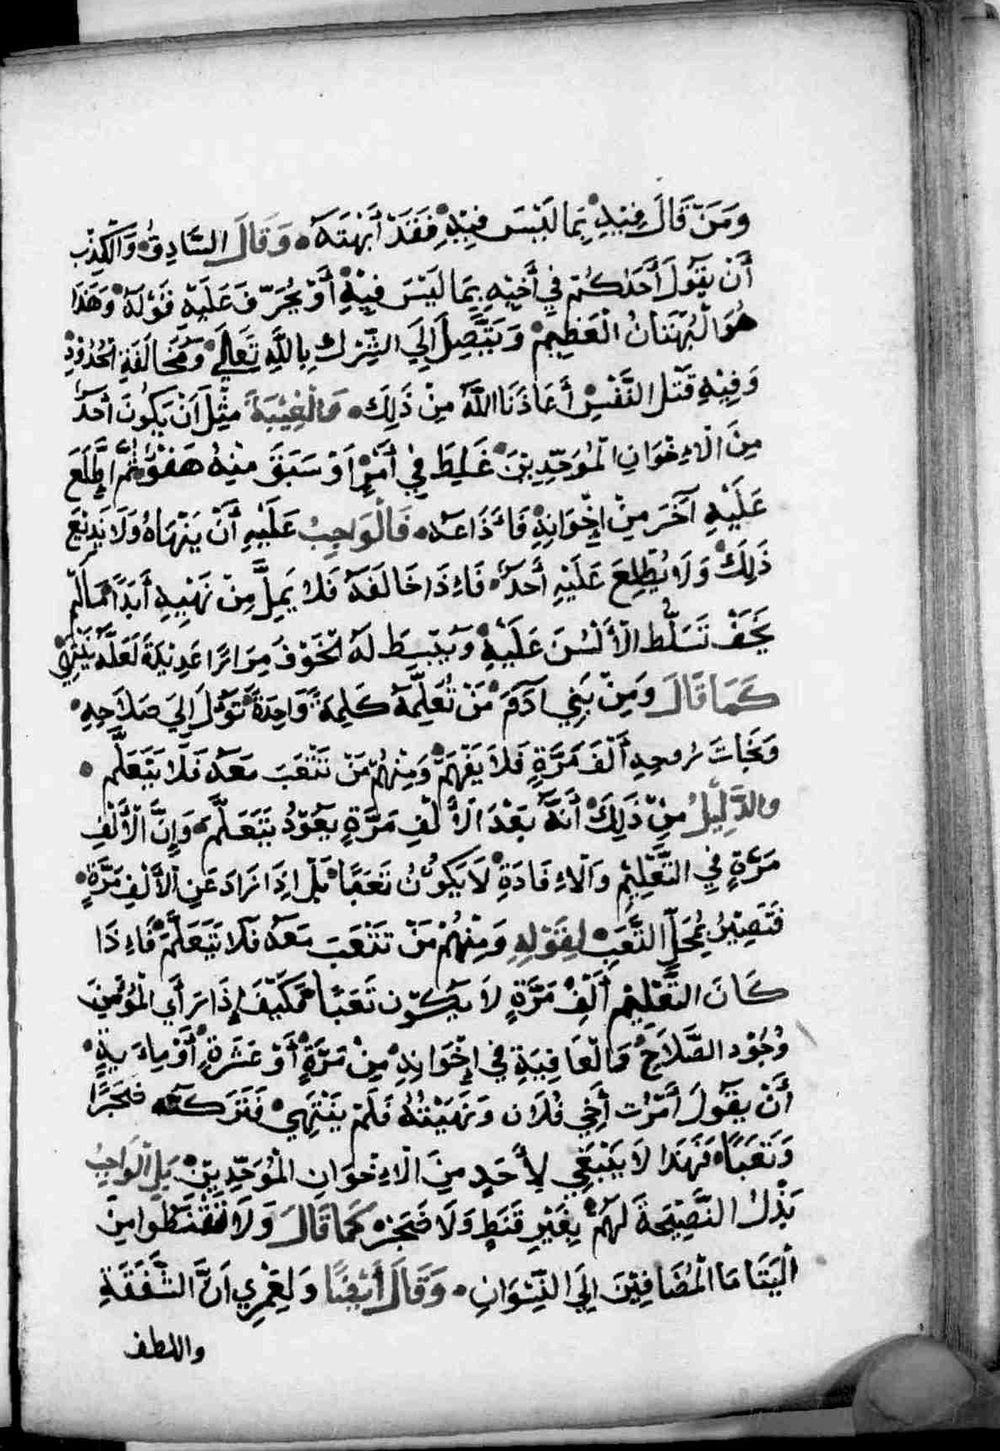 وَمَنْ قَالَ فِيْهِ بِمَا لَيْسَ فِيْهِ فَقَدْ أَبْهَتَهُ. وَقَالَ السَّادِقُ وَالْكِذْبُ
أَنْ يَقُولَ أَحَدُكُمْ فِي أَخِيْهِ بِمَا لَيْسَ فِيْهِ أَوْ يُحَرِّفَ عَلَيْهِ قَوْلَهُ وَهَذَا
هُوَ الْبُهْتَانُ الْعَظِيمُ وَيَتَّصِلُ إِلَى الشِّرْكِ بِاللَّهِ تَعَالَى وَمُخَالَفَةِ الْحُدُوْدِ
وَفِيْهِ قَتْلُ النَّفْسِ أَعَاذَنَا اللَّهُ مِنْ ذَلِكَ. وَالْغِيْبَةُ مِثْلُ أَنْ يَكُونَ أَحَدٌ
مِنَ الْاِخْوَانِ الْمُوَحِّدِيْنَ غَلِطَ فِي أَمْرٍ أَوْ سَبَقَ مِنْهُ هَفْوَةٌ ثُمَّ اطَّلَعَ
عَلَيْهِ آخَرَ مِنْ اِخْوَانِهِ فَاِذَاعَهُ. فَالْوَاجِبُ عَلَيْهِ أَنْ يَنْهَاهُ وَلَا يَدِيْعَ
ذَلِكَ وَلَا يُطْلِعَ عَلَيْهِ أَحَدٌ فَاِذَا خَالَفَهُ فَلَا يَمِلَّ مِنْ نَهْيِهِ أَبَدًا مَا لَمْ
يَخَفْ تَسَلُّطَ الْأَلْسُنِ عَلَيْهِ وَيَبْسِطَ لَهُ الْخَوْفَ مِرَارًا عَدِيْدَةً لَعَلَّهُ يَنْتَهِيْ
كَمَا قَالَ وَمِنْ بَنِي آدَمَ مَنْ تُعَلِّمُهُ كَلِمَةً وَاحِدَةً تَؤُلُ إِلَى صَلَاحِهِ
وَنَجَاتَ رُوحِهِ أَلْفَ مَرَّةٍ فَلَا يَفْهَمُ وَمِنْهُمْ مَنْ تَتْعَبَ مَعَهُ فَلَا يَتَعَلَّمُ.
وَالدَّلِيْلُ مِنْ ذَلِكَ أَنَّهُ بَعْدَ الْأَلْفِ مَرَّةٍ يَعُوْدُ يَتَعَلَّمُ وَإِنَّ الْأَلْفَ
مَرَّةٍ فِي التَّعْلِيْمِ وَالْاِفَادَةِ لَا يَكُوْنُ تَعَبًا بَلْ اِذَا زَادَ عَنِ الْأَلْفِ مَرَّةٍ
فَتَصِيْرُ مَحَلَّ التَّعَبِ لِقَوْلِهِ وَمِنْهُمْ مَنْ تَتْعَبَ مَعَهُ فَلَا يَتَعَلَّمُ فَاِذَا
كَانَ التَّعْلِيْمِ أَلْفَ مَرَّةٍ لَا يَكُوْنُ تَعَبًا فَكَيْفَ إِذَا رَأَي الْمُؤْمِنَ
وُجُوْدَ الصَّلَاحِ وَالْعَافِيَةِ فِي إِخْوَانِهِ مِنْ مَرَّةٍ أَوْ عَشَرَةٍ أَوْ مِايَةٍ
أَنْ يَقُولَ أَمَرْتُ أَخِي فُلَان وَنَهَيْتُهُ فَلَمْ يَنْتَهِيْ فَتَرَكْتُهُ ضَجَرًا
وَتَعَبًا فَهَذَا لَا يَنْبَغِي لِأَحَدٍ مِنَ الْاِخْوَانِ الْمُوَحِّدِيْنَ بَلْ الْوَاجِبُ
بَذْلُ النَّصِيْحَةَ لَهُمْ بِغَيْرِ قَنَطٍ وَلَا ضَجَرٍ كَمَا قَالَ وَلَا تَقْنَطُوا مِنْ
اَلْيَتَامَا الْمُضَافِيْنَ إِلَى النِّسْوَانِ. وَقَالَ أَيْضًا وَلَعَمْرِي اَنَّ الشَّفَقَةَ
واللطف